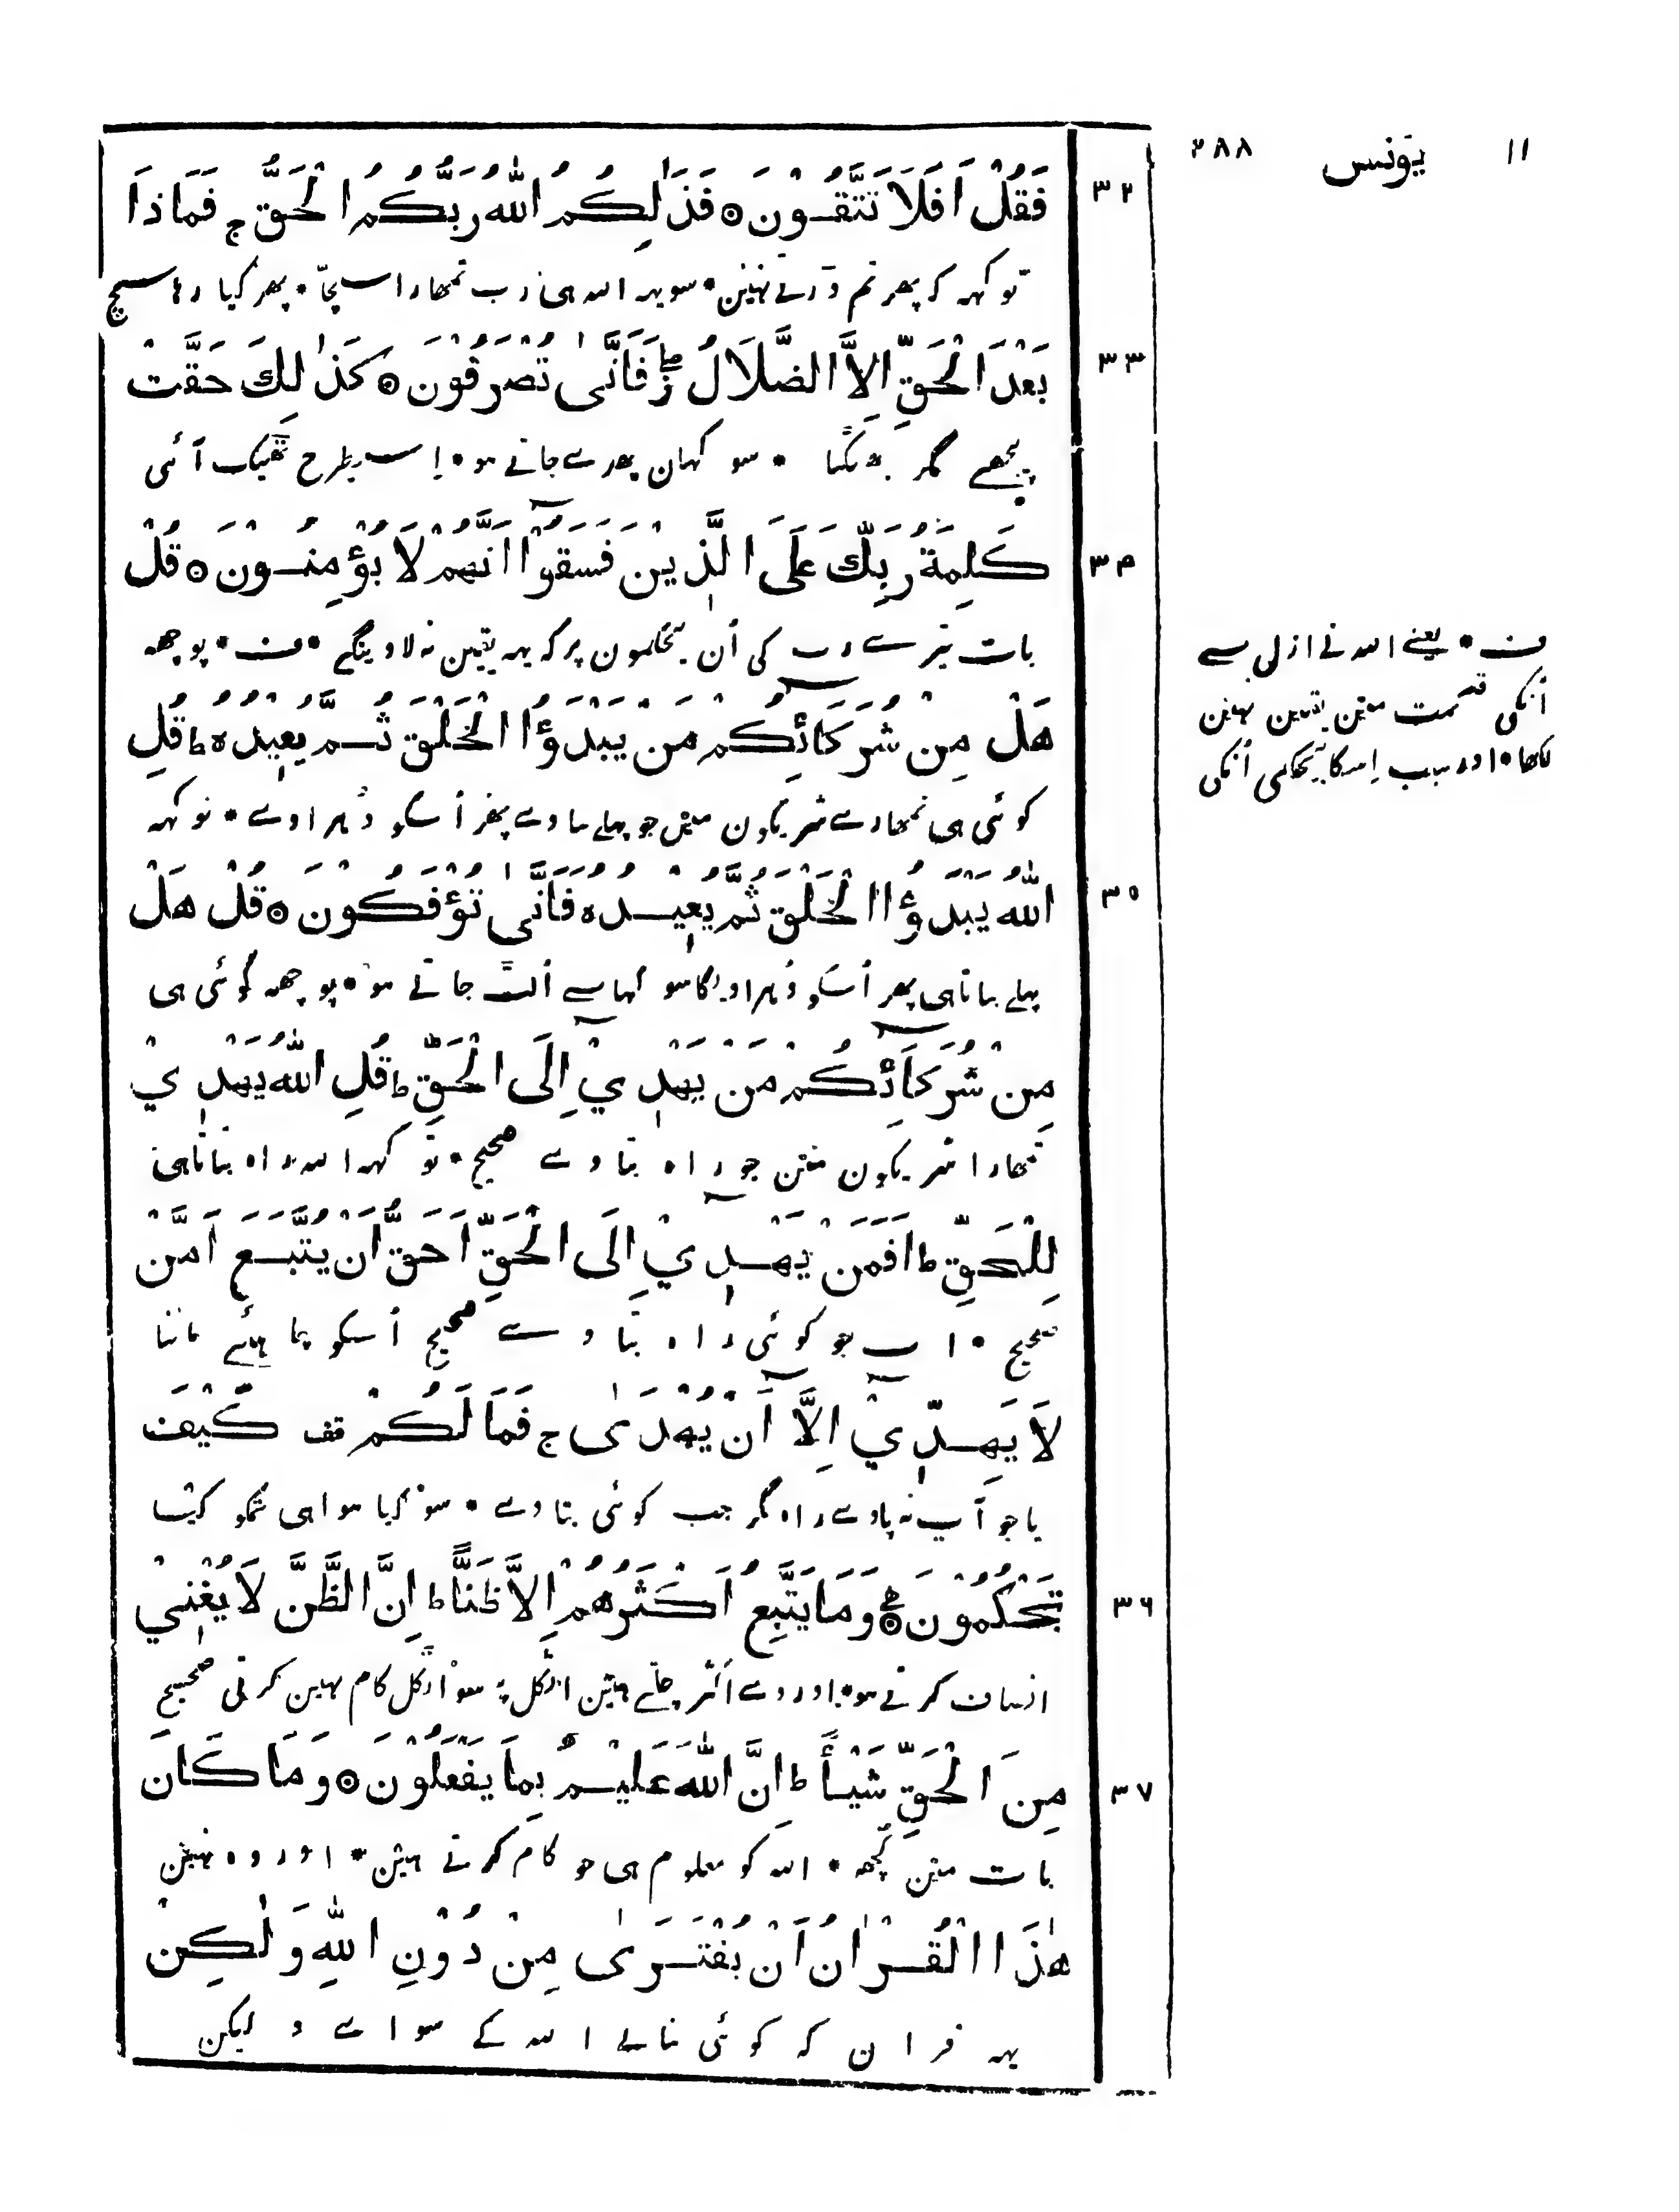 ١١ يونس ٣٨٨
٣٢ فَقُلْ اَفَلَا تَتَّقُوْنَ ۝ فَذٰلِكُمُ اللّٰهُ رَبُّكُمُ الْحَقُّ ج فَمَاذَا
تو کہہ کہ پھر تم ڈرتے نہین * سو یہہ اللہ ہی رب تمھارا سچّا * پھر کیا رہا سچ
٣٣ بَعْدَ الْحَقِّ اِلَّا الضَّلَالُ فَاَنّٰى تُصْرَفُوْنَ ۝ كَذٰلِكَ حَقَّتْ
پیچھے مگر بھٹکنا * سو کہان پھرے جاتے ہو * اِسیطرح ٹھیک آئی
٣٤ كَلِمَةُ رَبِّكَ عَلَى الَّذِيْنَ فَسَقُوْٓا اَنَّهُمْ لَا يُؤْمِنُوْنَ ۝ قُلْ
بات تیرے رب کی اُن بیحکمون پر کہ یہہ یقین نہ لاوینگے * ف * پوچھہ
هَلْ مِنْ شُرَكَآئِكُمْ مَنْ يَبْدَؤُا الْخَلْقَ ثُمَّ يُعِيْدُهُ ط قُلِ
کوئی ہی تمھارے شریکون مین جو پہلے بناوے پھر اُسکو دُہراوے * تو کہہ
٣٥ اللّٰهُ يَبْدَؤُا الْخَلْقَ ثُمَّ يُعِيْدُهُ فَاَنّٰى تُؤْفَكُوْنَ ۝ قُلْ هَلْ
پہلے بناتا ہی پھر اُسکو دُہراویگا سو کہا سے اُلٹ جاتے ہو * پوچھہ کوئی ہی
مِنْ شُرَكَآئِكُمْ مَنْ يَهْدِيْٓ اِلَى الْحَقِّ ط قُلِ اللّٰهُ يَهْدِيْ
تمھارا شریکون مین جو راہ بتاوے صحیح * تو کہہ اللہ راہ بتاتا ہی
لِلْحَقِّ ط اَفَمَنْ يَهْدِيْٓ اِلَى الْحَقِّ اَحَقُّ اَنْ يُتَّبَعَ اَمَّنْ
صحیح * اب جو کوئی راہ بتاوے صحیح اُسکو چاہئے ماننا
لَا يَهِدِّيْٓ اِلَّآ اَنْ يُهْدٰى ج فَمَا لَكُمْ قف كَيْفَ
یا جو آپ نہ پاوے راہ مگر جب کوئی بتاوے * سو کیا ہوا ہی تمکو کیسا
٣٦ تَحْكُمُوْنَ ۝ وَمَا يَتَّبِعُ اَكْثَرُهُمْ اِلَّا ظَنًّا ط اِنَّ الظَّنَّ لَا يُغْنِيْ
انصاف کرتے ہو * اور وے اکثر چلتے ہین اٹکل پہ سو اٹکل کام نہین کرتی صحیح
٣٧ مِنَ الْحَقِّ شَيْـأً ط اِنَّ اللّٰهَ عَلِيْمٌ بِمَا يَفْعَلُوْنَ ۝ وَمَا كَانَ
بات مین کُچھہ * اللہ کو معلوم ہی جو کام کرتے ہین * اور وہ نہین
هٰذَا الْقُرْاٰنُ اَنْ يُفْتَرٰى مِنْ دُوْنِ اللّٰهِ وَلٰكِنْ
یہہ قران کہ کوئی بنالے اللہ کے سواے و لیکن
ف * یعنے اللہ نے ازل سے
اُنکی قسمت مین یقین نہین
لکھا * اور سبب اِسکا بیحکمی اُنکی